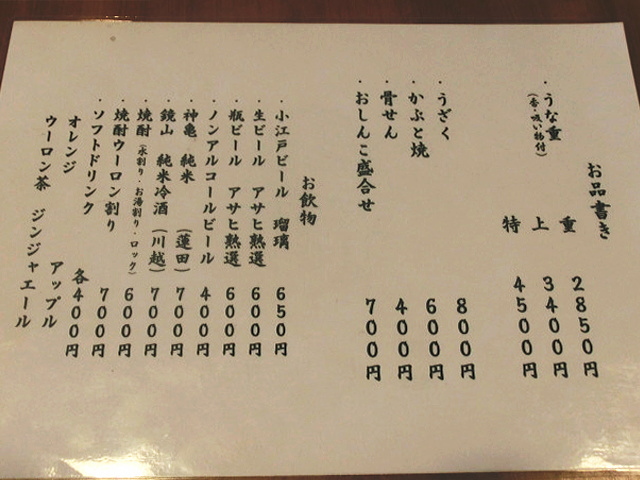 お品書き
・うな重 重 2850円
(香・吸い物付) 上 3400円
特 4500円
・うざく 800円
・かぶと焼 600円
・骨せん 400円
・おしんこ盛合せ 700円
お飲物
・小江戸ビール 瑠璃 650円
・生ビール アサヒ熟選 600円
・瓶ビール アサヒ熟選 600円
・ノンアルコールビール 400円
・神亀 純米 (蓮田) 700円
・鏡山 純米冷酒 (川越) 700円
・焼酎 (水割り・お湯割り・ロック) 600円
・焼酎ウーロン割り 700円
・ソフトドリンク 各400円
オレンジ アップル
ウーロン茶 ジンジャエール